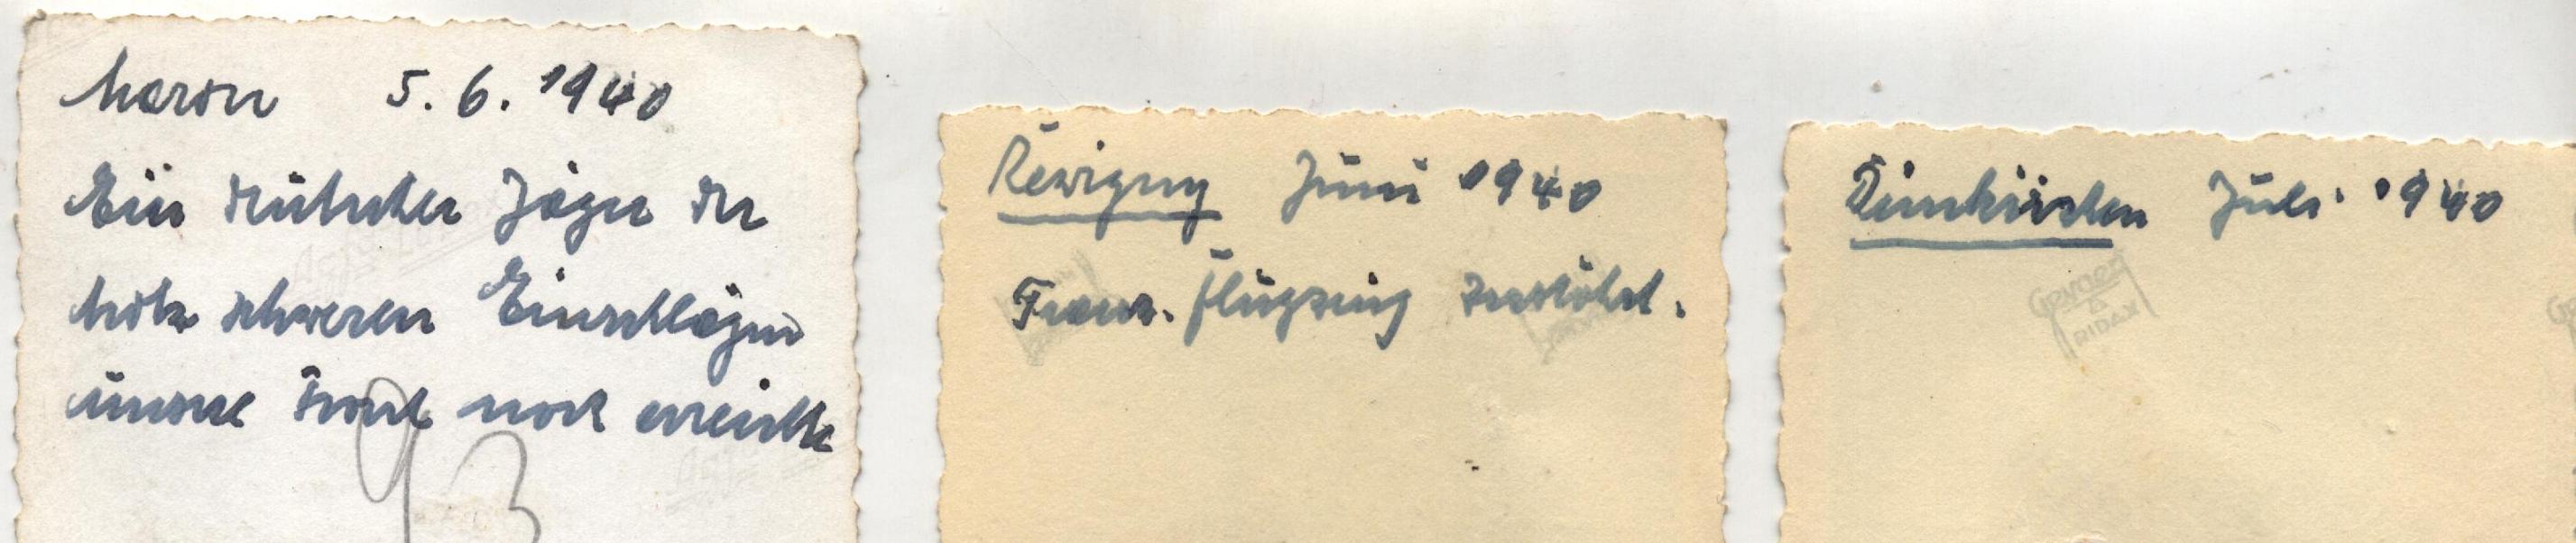 5. 6. 1940
Ein deutscher Jäger der
trotz schweren Einschlägen
unsere Front noch erreichte
93
Revigny Juni 1940
Franz. Flugzeug zerstöhrt.
Dünkirchen Juli 1940
GEVAERT
RIDAX